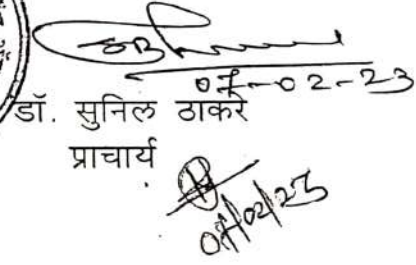 07-02-23
डॉ. सुनिल ठाकरे
प्राचार्य
07/02/23